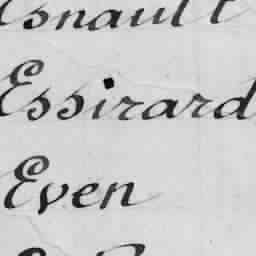 Esnault
Essirard
Even